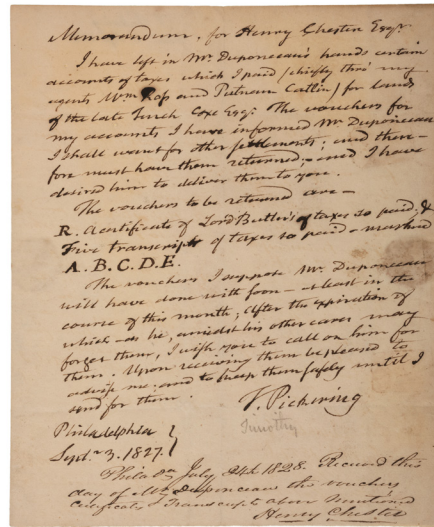 Memorandum, for Henry Chester Esqr.
I have left in Mr. Duponceau's hands certain
accounts of taxes which I paid (chiefly thro' my
agents Wm. Ross and Putnam Catlin) for lands
of the late Tench Coxe Esq. The vouchers for
my accounts I have informed Mr. Duponceau
I shall want for other settlements; and there-
fore must have them returned; and I have
desired him to deliver them to you.
The vouchers to be returned are—
R. A certificate of Lord Butler's of taxes so paid, &
Five transcripts of taxes so paid - marked
A. B. C. D. E.
The vouchers I suppose Mr. Duponceau
will have done with soon - at least in the
course of this month; after the expiration of
which - as he, amidst his other cares may
forget them, I wish you to call on him for
them. Upon receiving them be pleased to
advise me, and to keep them safely until I
send for them.
T. Pickering
Timothy
Philadelphia
Septr. 3. 1827.
Philada. July 24th. 1828. Received this
day of Mr. Duponceau the vouchers
certificates & transcripts above mentioned
Henry Chester